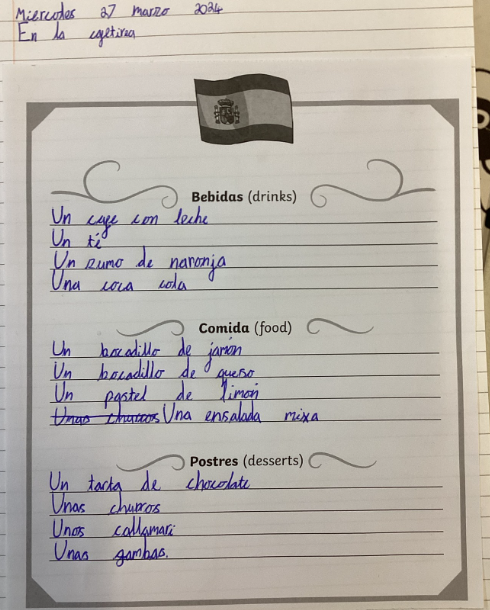 Miercoles 27 marzo 2024
En la cafetirea
Bebidas (drinks)
Un cafe con leche
Un té
Un zumo de naronja
Una coca cola
Comida (food)
Un bocadillo de jamón
Un bocadillo de queso
Un pastel de limon
Unas churros Una ensalada mixa
Postres (desserts)
Un tarta de chocolate
Unas churros
Unos callamari
Unas gambas.